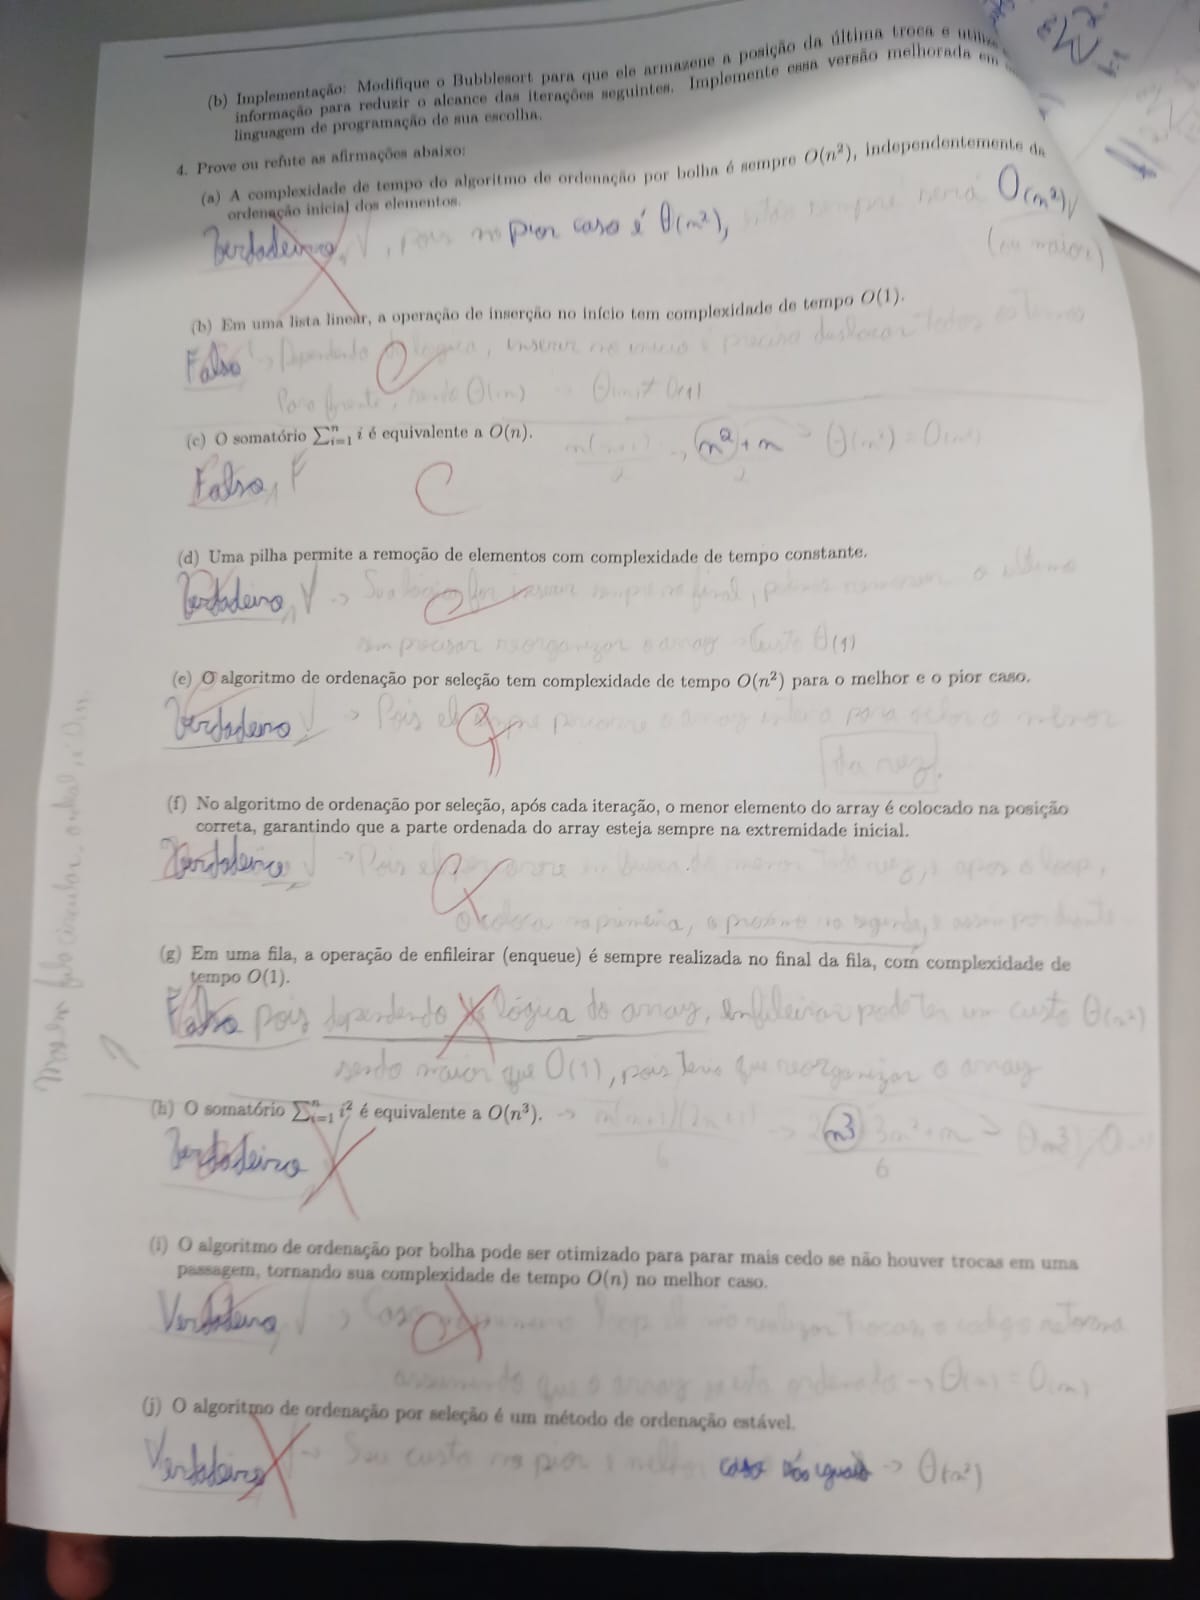 (b) Implementação: Modifique o Bubblesort para que ele armazene a posição da última troca e utilize
informação para reduzir o alcance das iterações seguintes. Implemente essa versão melhorada em
linguagem de programação de sua escolha.
4. Prove ou refute as afirmações abaixo:
(a) A complexidade de tempo do algoritmo de ordenação por bolha é sempre O(n²), independentemente da
ordenação inicial dos elementos.
Verdadeiro, V, pois no pior caso é θ(n²), então sempre será O(n²),
(ou maior)
(b) Em uma lista linear, a operação de inserção no início tem complexidade de tempo O(1).
Falso -> Dependendo da lógica, inserir no início é preciso deslocar todos
Para frente, sendo θ(n) -> θ(n) ≠ O(1)
(c) O somatório ∑ⁿᵢ₌₁ i é equivalente a O(n).
n(n+1)/2 -> n²+n/2 -> θ(n²) = O(n²)
Falso, F
(d) Uma pilha permite a remoção de elementos com complexidade de tempo constante.
Verdadeiro, V -> Se a lógica for inserir sempre no final, podemos remover o último
sem precisar reorganizar o array -> Custo θ(1)
(e) O algoritmo de ordenação por seleção tem complexidade de tempo O(n²) para o melhor e o pior caso.
Verdadeiro V -> Pois ele sempre percorre o array inteiro para achar o menor
da vez.
(f) No algoritmo de ordenação por seleção, após cada iteração, o menor elemento do array é colocado na posição
correta, garantindo que a parte ordenada do array esteja sempre na extremidade inicial.
Verdadeiro, V -> Pois ele percorre em busca do menor toda vez, e após o loop,
o coloca na primeira, o próximo na segunda, e assim por diante
(g) Em uma fila, a operação de enfileirar (enqueue) é sempre realizada no final da fila, com complexidade de
tempo O(1).
Falso pois dependendo da lógica do array, enfileirar pode ter um custo θ(n²)
sendo maior que O(1), pois teria que reorganizar o array
(h) O somatório ∑ⁿᵢ₌₁ i² é equivalente a O(n³). -> n(n+1)(2n+1)/6 -> 2n³ 3n²+n/6 -> θ(n³)
Verdadeiro
(i) O algoritmo de ordenação por bolha pode ser otimizado para parar mais cedo se não houver trocas em uma
passagem, tornando sua complexidade de tempo O(n) no melhor caso.
Verdadeiro, V -> Caso primeiro loop ele não realizar trocas, o código retorna
assumindo que o array já está ordenado -> θ(n) = O(n)
(j) O algoritmo de ordenação por seleção é um método de ordenação estável.
Verdadeiro V -> Seu custo no pior e melhor caso são iguais -> θ(n²)
Mas em fila circular
?